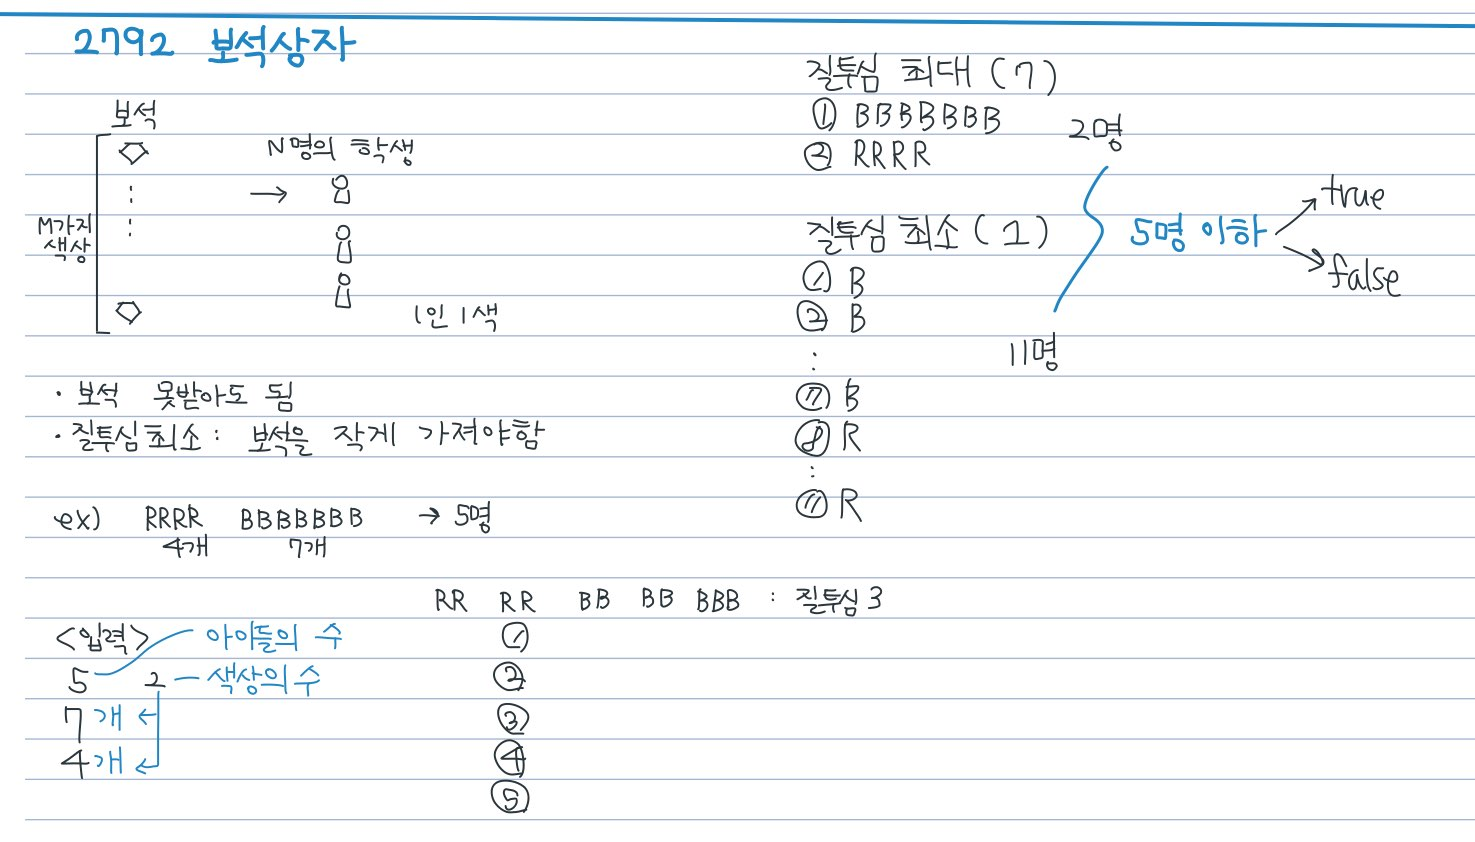 2792 보석상자
보석
N명의 학생
→
M가지
색상
1인 1색
· 보석 못받아도 됨
· 질투심 최소 : 보석을 작게 가져야함
ex) RRRR BBBBBBB → 5명
4개 7개
RR RR BB BB BBB : 질투심 3
①
②
③
④
⑤
<입력> 아이들의 수
5 2 - 색상의 수
7개
4개
질투심 최대 (7)
① BBBBBBB
② RRRR
2명
질투심 최소 (1)
① B
② B
:
⑦ B
⑧ R
:
⑪ R
11명
5명 이하
true
false